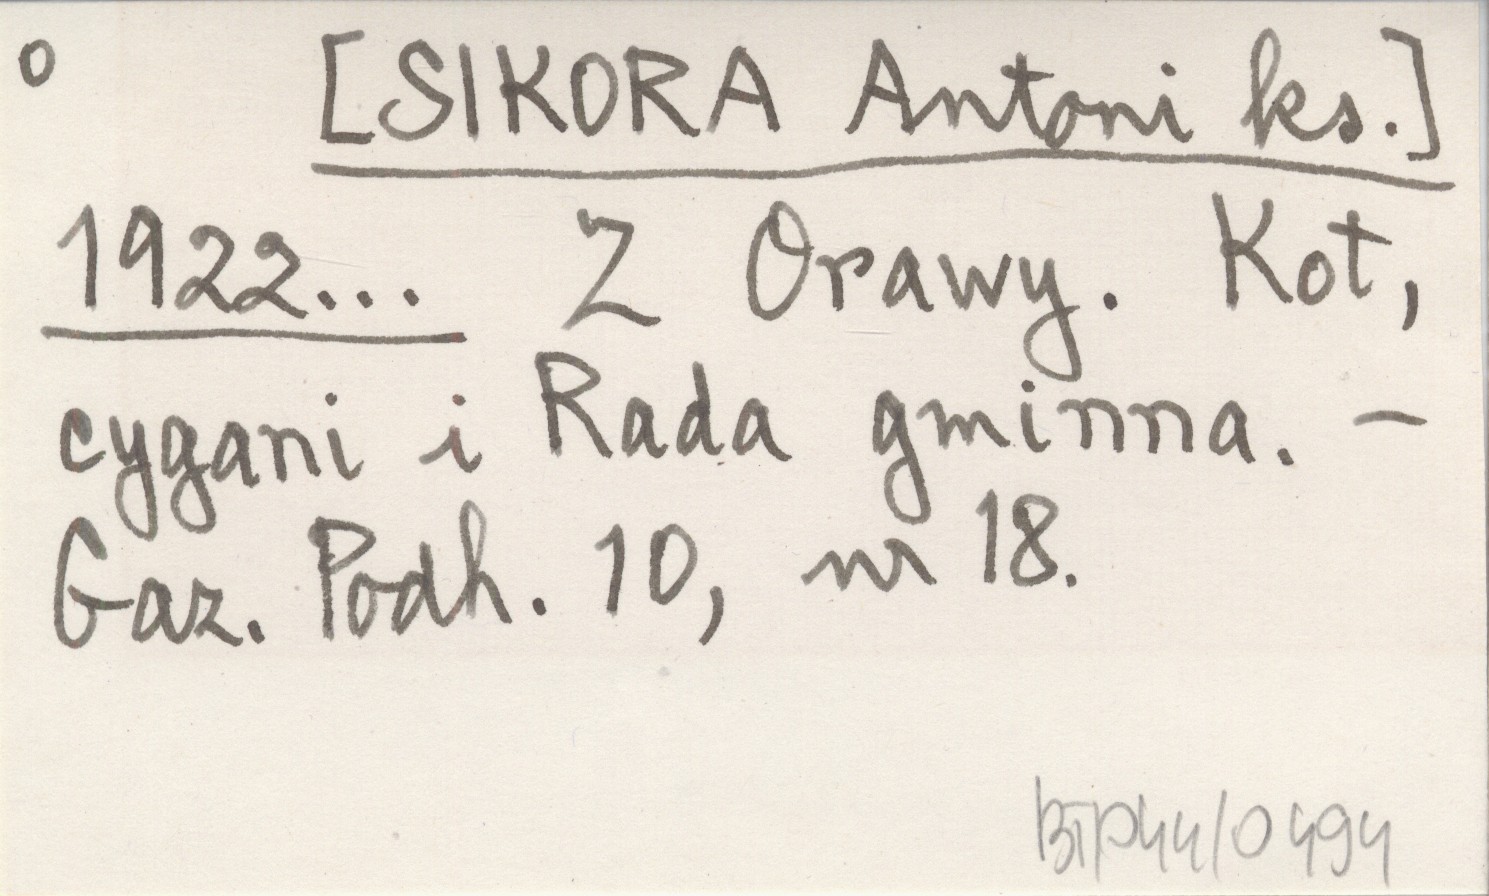 o [SIKORA Antoni ks.]
1922... Z Orawy. Kot,
cygani i Rada gminna. –
Gaz. Podh. 10, nr 18.
BTP44/0494